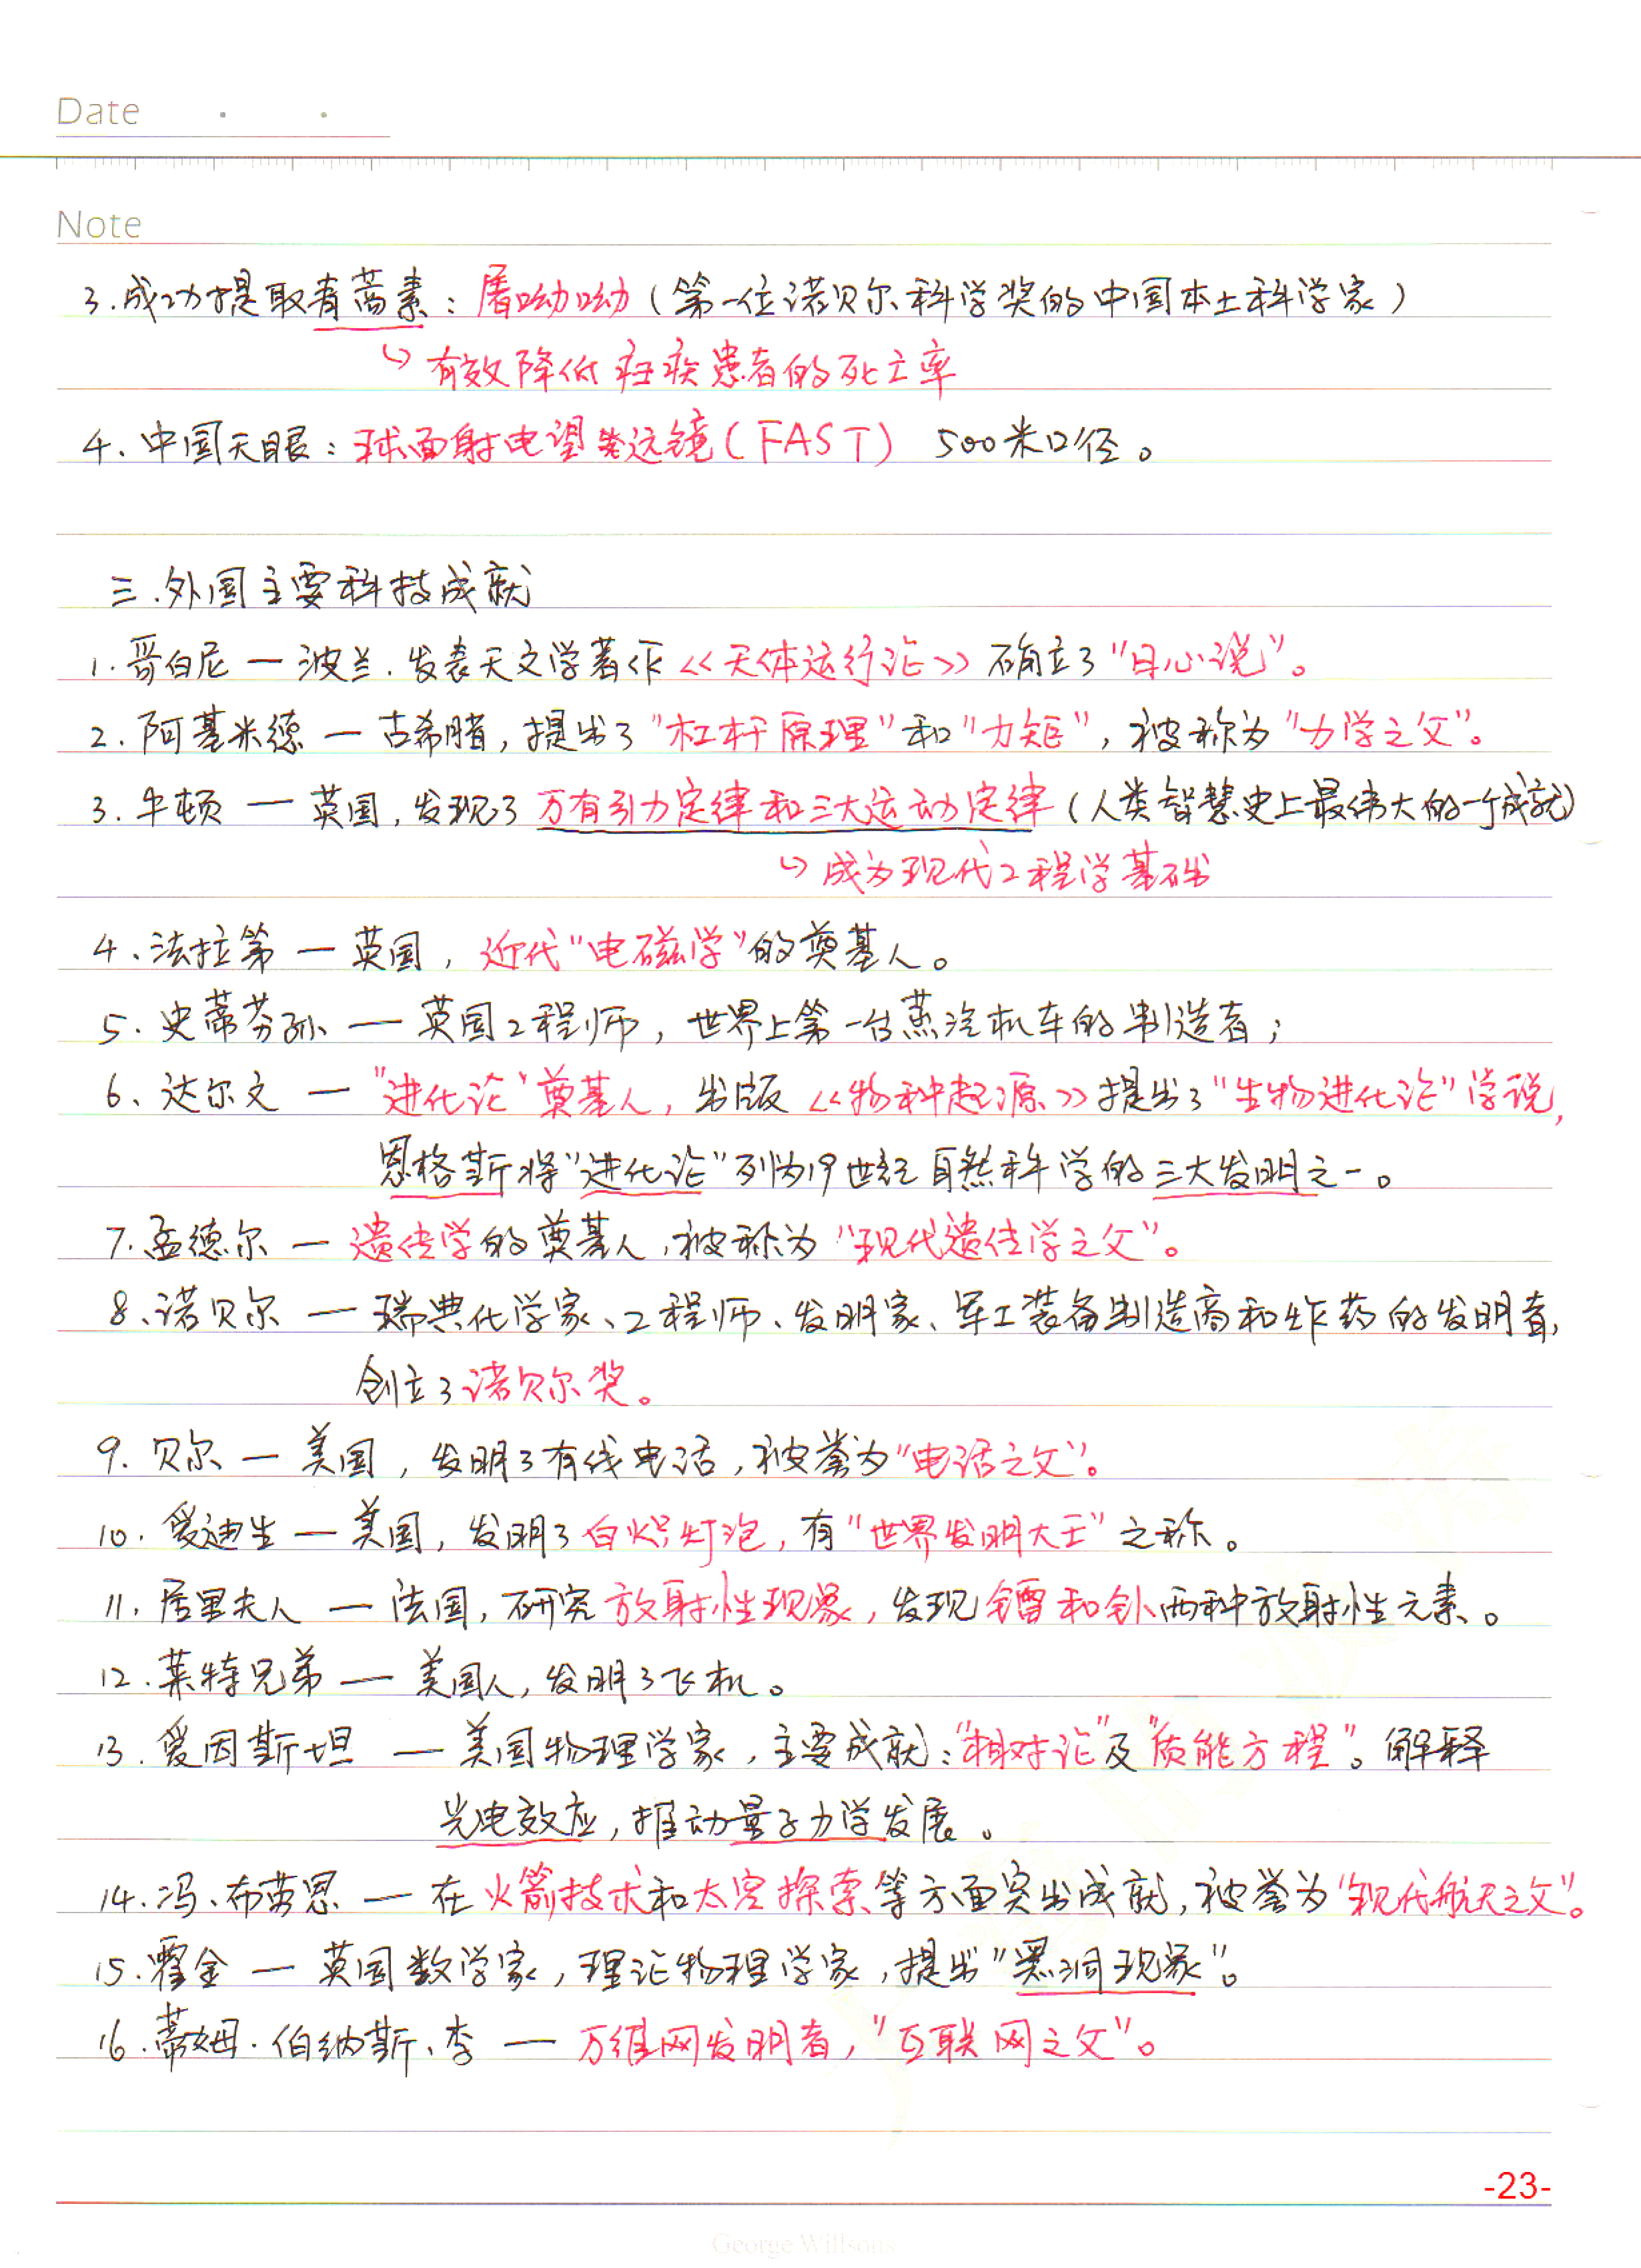 Date
Note
3.成功提取青蒿素：屠呦呦（第一位诺贝尔科学奖的中国本土科学家）
↳有效降低疟疾患者的死亡率
4、中国天眼：球面射电望远镜（FAST） 500米口径。
三.外国主要科技成就
1.哥白尼一波兰.发表天文学著作《天体运行论》确立了"日心说"。
2.阿基米德一古希腊，提出了"杠杆原理"和"力矩"，被称为"力学之父"。
3.牛顿一英国，发现了万有引力定律和三大运动定律（人类智慧史上最伟大的一个成就）
↳成为现代工程学基础
4、法拉第一英国，近代"电磁学"的奠基人。
5.史蒂芬孙一英国工程师，世界上第一台蒸汽机车的制造者；
6、达尔文一"进化论"奠基人，出版《物种起源》提出了"生物进化论"学说，
恩格斯将"进化论"列为19世纪自然科学的三大发明之一。
7.孟德尔一遗传学的奠基人，被称为"现代遗传学之父"。
8、诺贝尔一瑞典化学家、工程师、发明家、军工装备制造商和炸药的发明者，
创立了诺贝尔奖。
9.贝尔一美国，发明了有线电话，被誉为"电话之父"。
10.爱迪生一美国，发明了白炽灯泡，有"世界发明大王"之称。
11.居里夫人一法国，研究放射性现象，发现镭和钋两种放射性元素。
12.莱特兄弟一美国人，发明了飞机。
13.爱因斯坦一美国物理学家，主要成就："相对论"及"质能方程"。解释
光电效应，推动量子力学发展。
14.冯、布劳恩一在火箭技术和太空探索等方面突出成就，被誉为"现代航天之父"。
15.霍金一英国数学家，理论物理学家，提出"黑洞现象"。
16.蒂姆·伯纳斯、李一万维网发明者，"互联网之父"。
-23-
George Willson